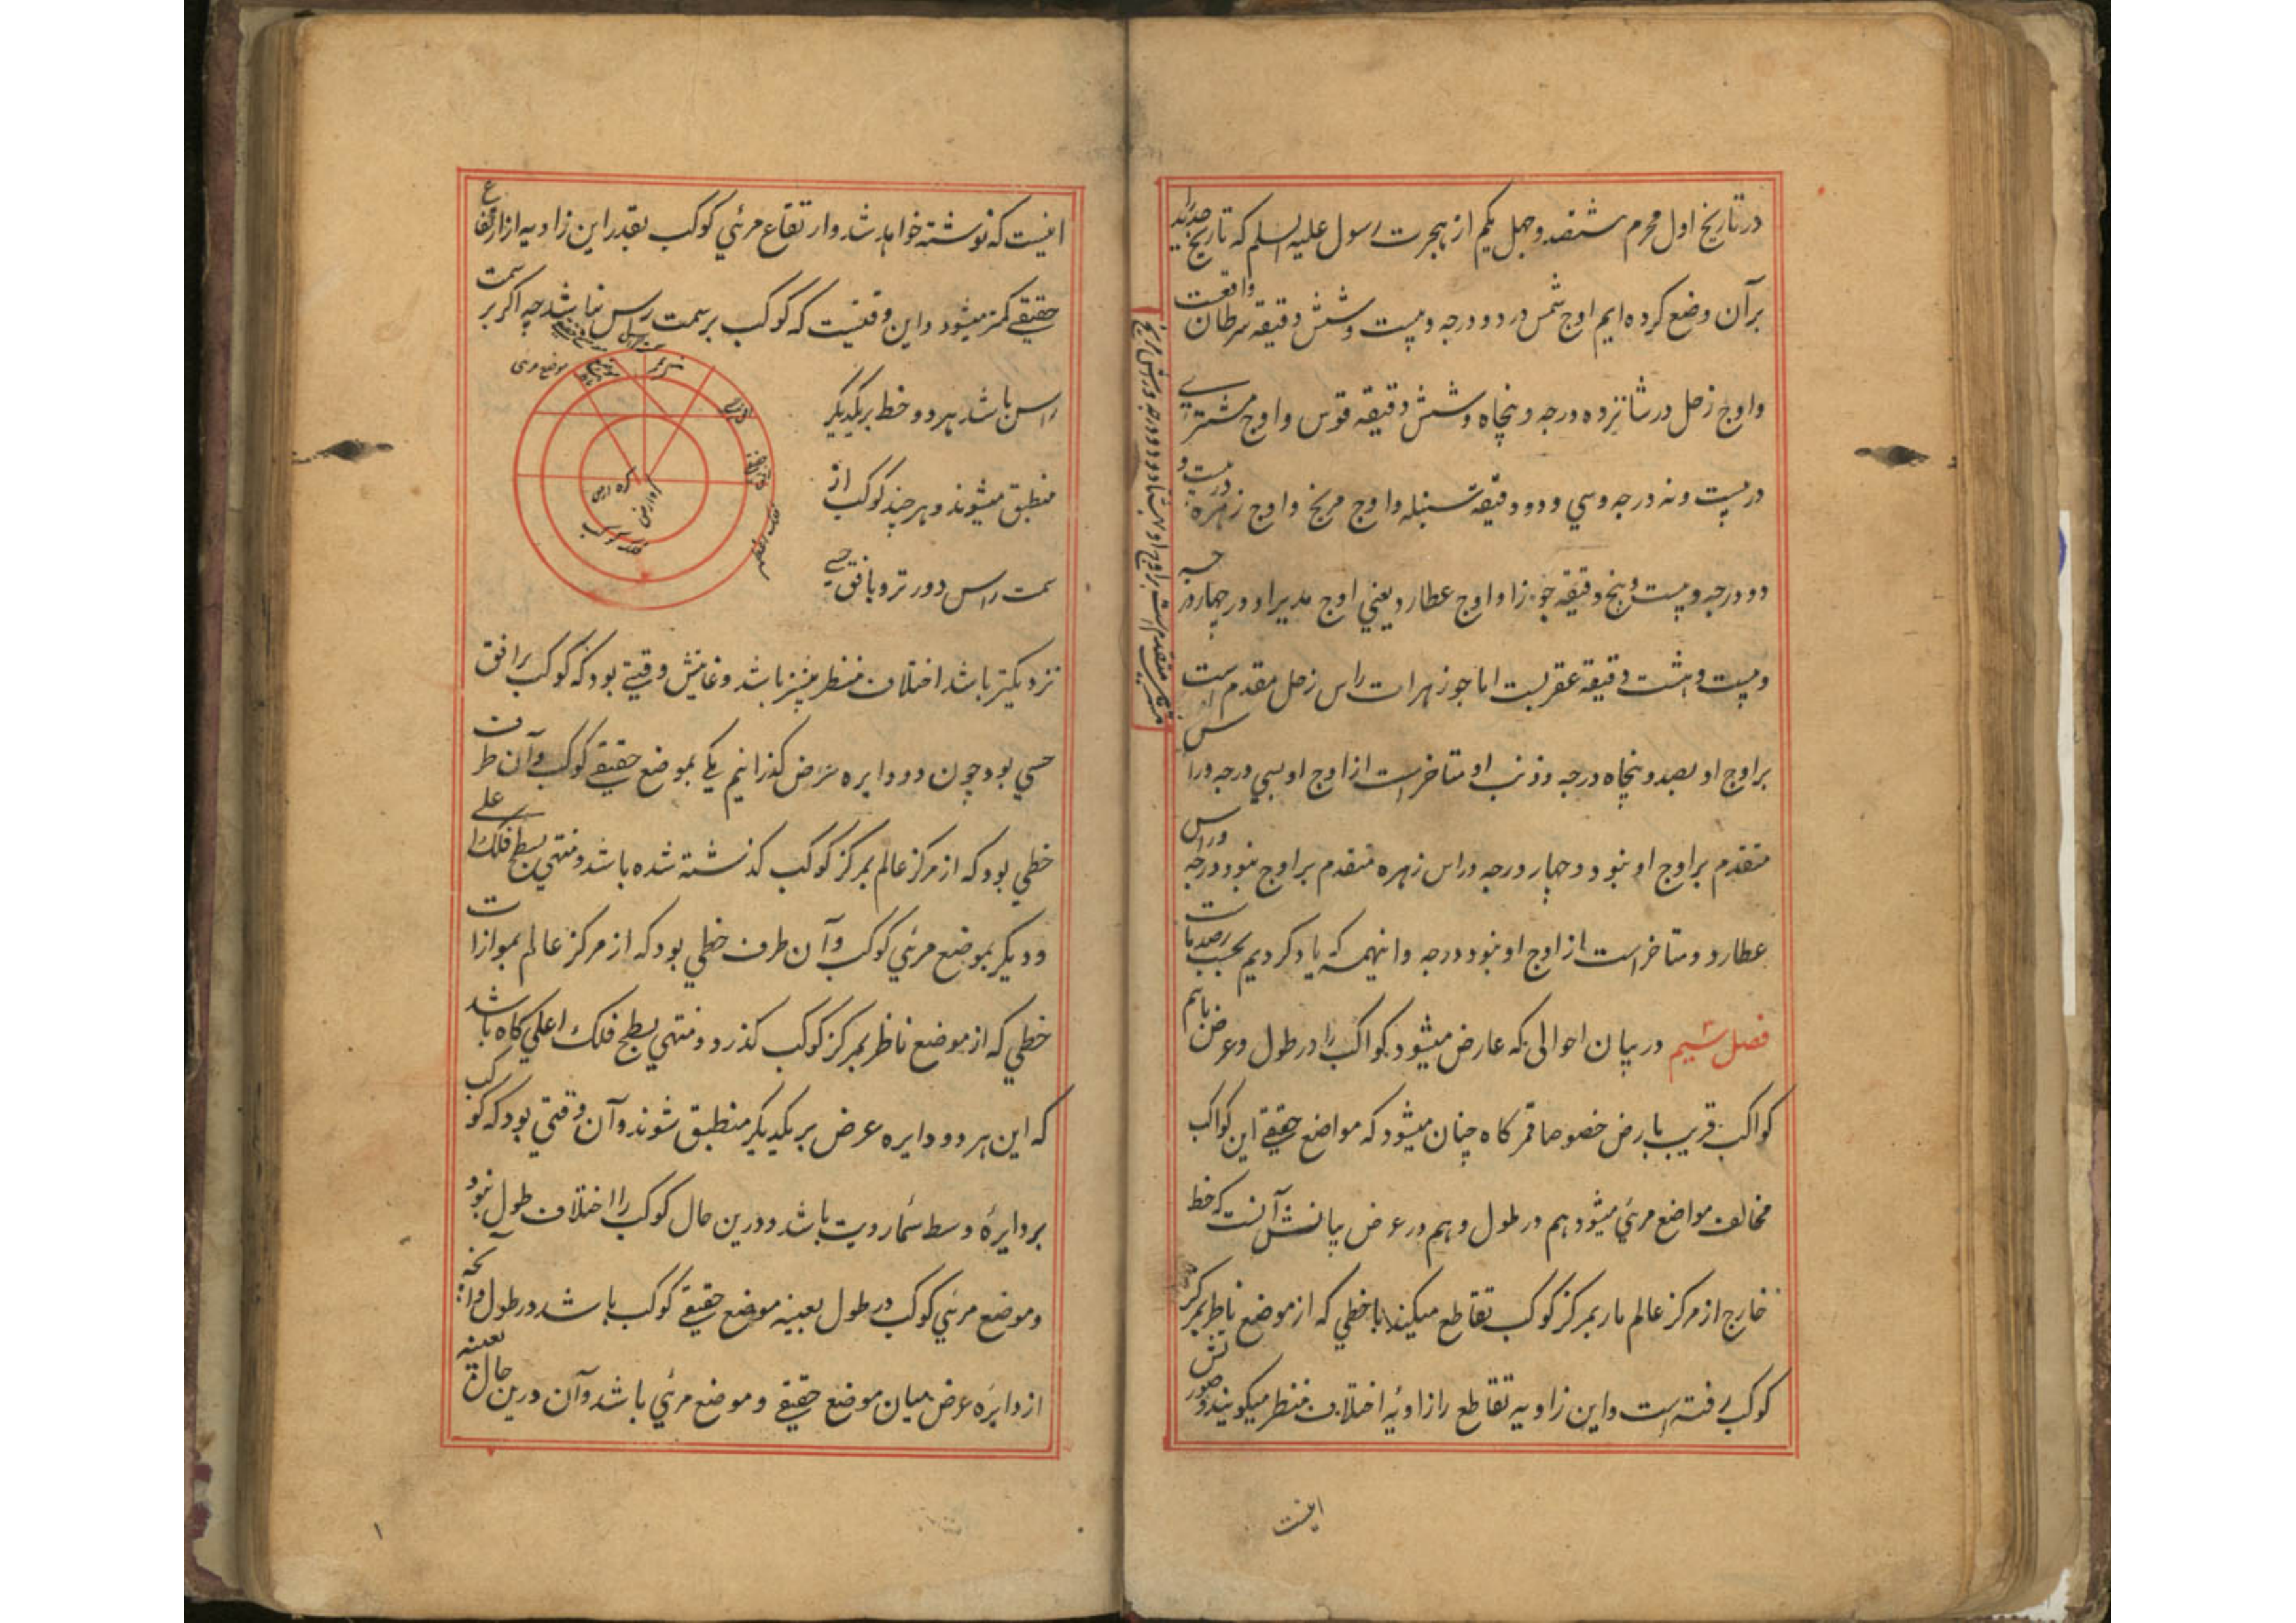 در تاریخ اول محرم ششصد و چهل یکم از هجرت رسول علیه السلم که تاریخ جدید
برآن وضع کرده ایم اوج شمس در دو درجه و بیست و شش دقیقه سرطان واقعست
و اوج زحل در شانزده درجه و پنجاه و شش دقیقه قوس و اوج مشتری
در بیست و نه درجه و سي و دو دقیقه سنبله و اوج مریخ و اوج زهره در بیست و
دو درجه و بیست و پنج دقیقه جوزا و اوج عطارد یعني اوج مدیر او در چهار درجه
و بیست و هشت دقیقه عقربست اما جوزهرات راس زحل مقدم است
بر اوج او بصد و پنجاه درجه و ذنب او متاخرست از اوج او بسي درجه و راس
متقدم بر اوج او بنود و چهار درجه و راس زهره متقدم بر اوج بنود درجه و راس
عطارد و متاخرست از اوج او بنود درجه و اینهمه که یاد کردیم بحسب رصد ماست
فصل ششم در بیان احوالی که عارض میشود کواکب را در طول و عرض باهم
کواکب قریب بارض خصوصا قمر کاه چنان میشود که مواضع حقیقے این کواکب
مخالف مواضع مرئي میشود هم در طول و هم در عرض بیانش آنست که خط
خارج از مرکز عالم مار بمرکز کوکب تقاطع میکند با خطي که از موضع ناظر بمرکز
کوکب رفته است و این زاویه تقاطع را زاویهٔ اختلاف منظر میکویند و صورتش
اینست
اینست که نوشته خواهد شد و ارتفاع مرئي کوکب بقدر این زاویه از ارتفاع
حقیقے کمتر میشود و این وقتیست که کوکب بر سمت رس نباشد چه اکر بر سمت
راس باشد هر دو خط بریکدیکر
موضع مرئی
منطبق میشوند و هر چند کوکب از
سمت راس دورتر و بافق حسے
کره ارض
فلک کوکب
نزدیکتر باشد اختلاف منظر بیشتر باشد و غایتش وقتے بود که کوکب بر افق
حسي بود چون دو دایره عرض کذرانیم یکے بموضع حقیقے کوکب و آن طرف
خطي بود که از مرکز عالم بمرکز کوکب کذشته شده باشد و منتهي بسطح فلک اعلے
و دیکر بموضع مرئي کوکب و آن طرف خطي بود که از مرکز عالم بموازات
خطي که از موضع ناظر بمرکز کوکب کذرد و منتهي بسطح فلک اعلي کاه باشد
که این هر دو دایره عرض بر یکدیکر منطبق شوند و آن وقتي بود که کوکب
بر دایرهٔ وسط سماء رویت باشد و درین حال کوکب را اختلاف طول نبود
و موضع مرئي کوکب در طول بعینه موضع حقیقے کوکب باشد در طول و آنچه
از دایره عرض میان موضع حقیقے و موضع مرئي باشد و آن درین حال بعینه